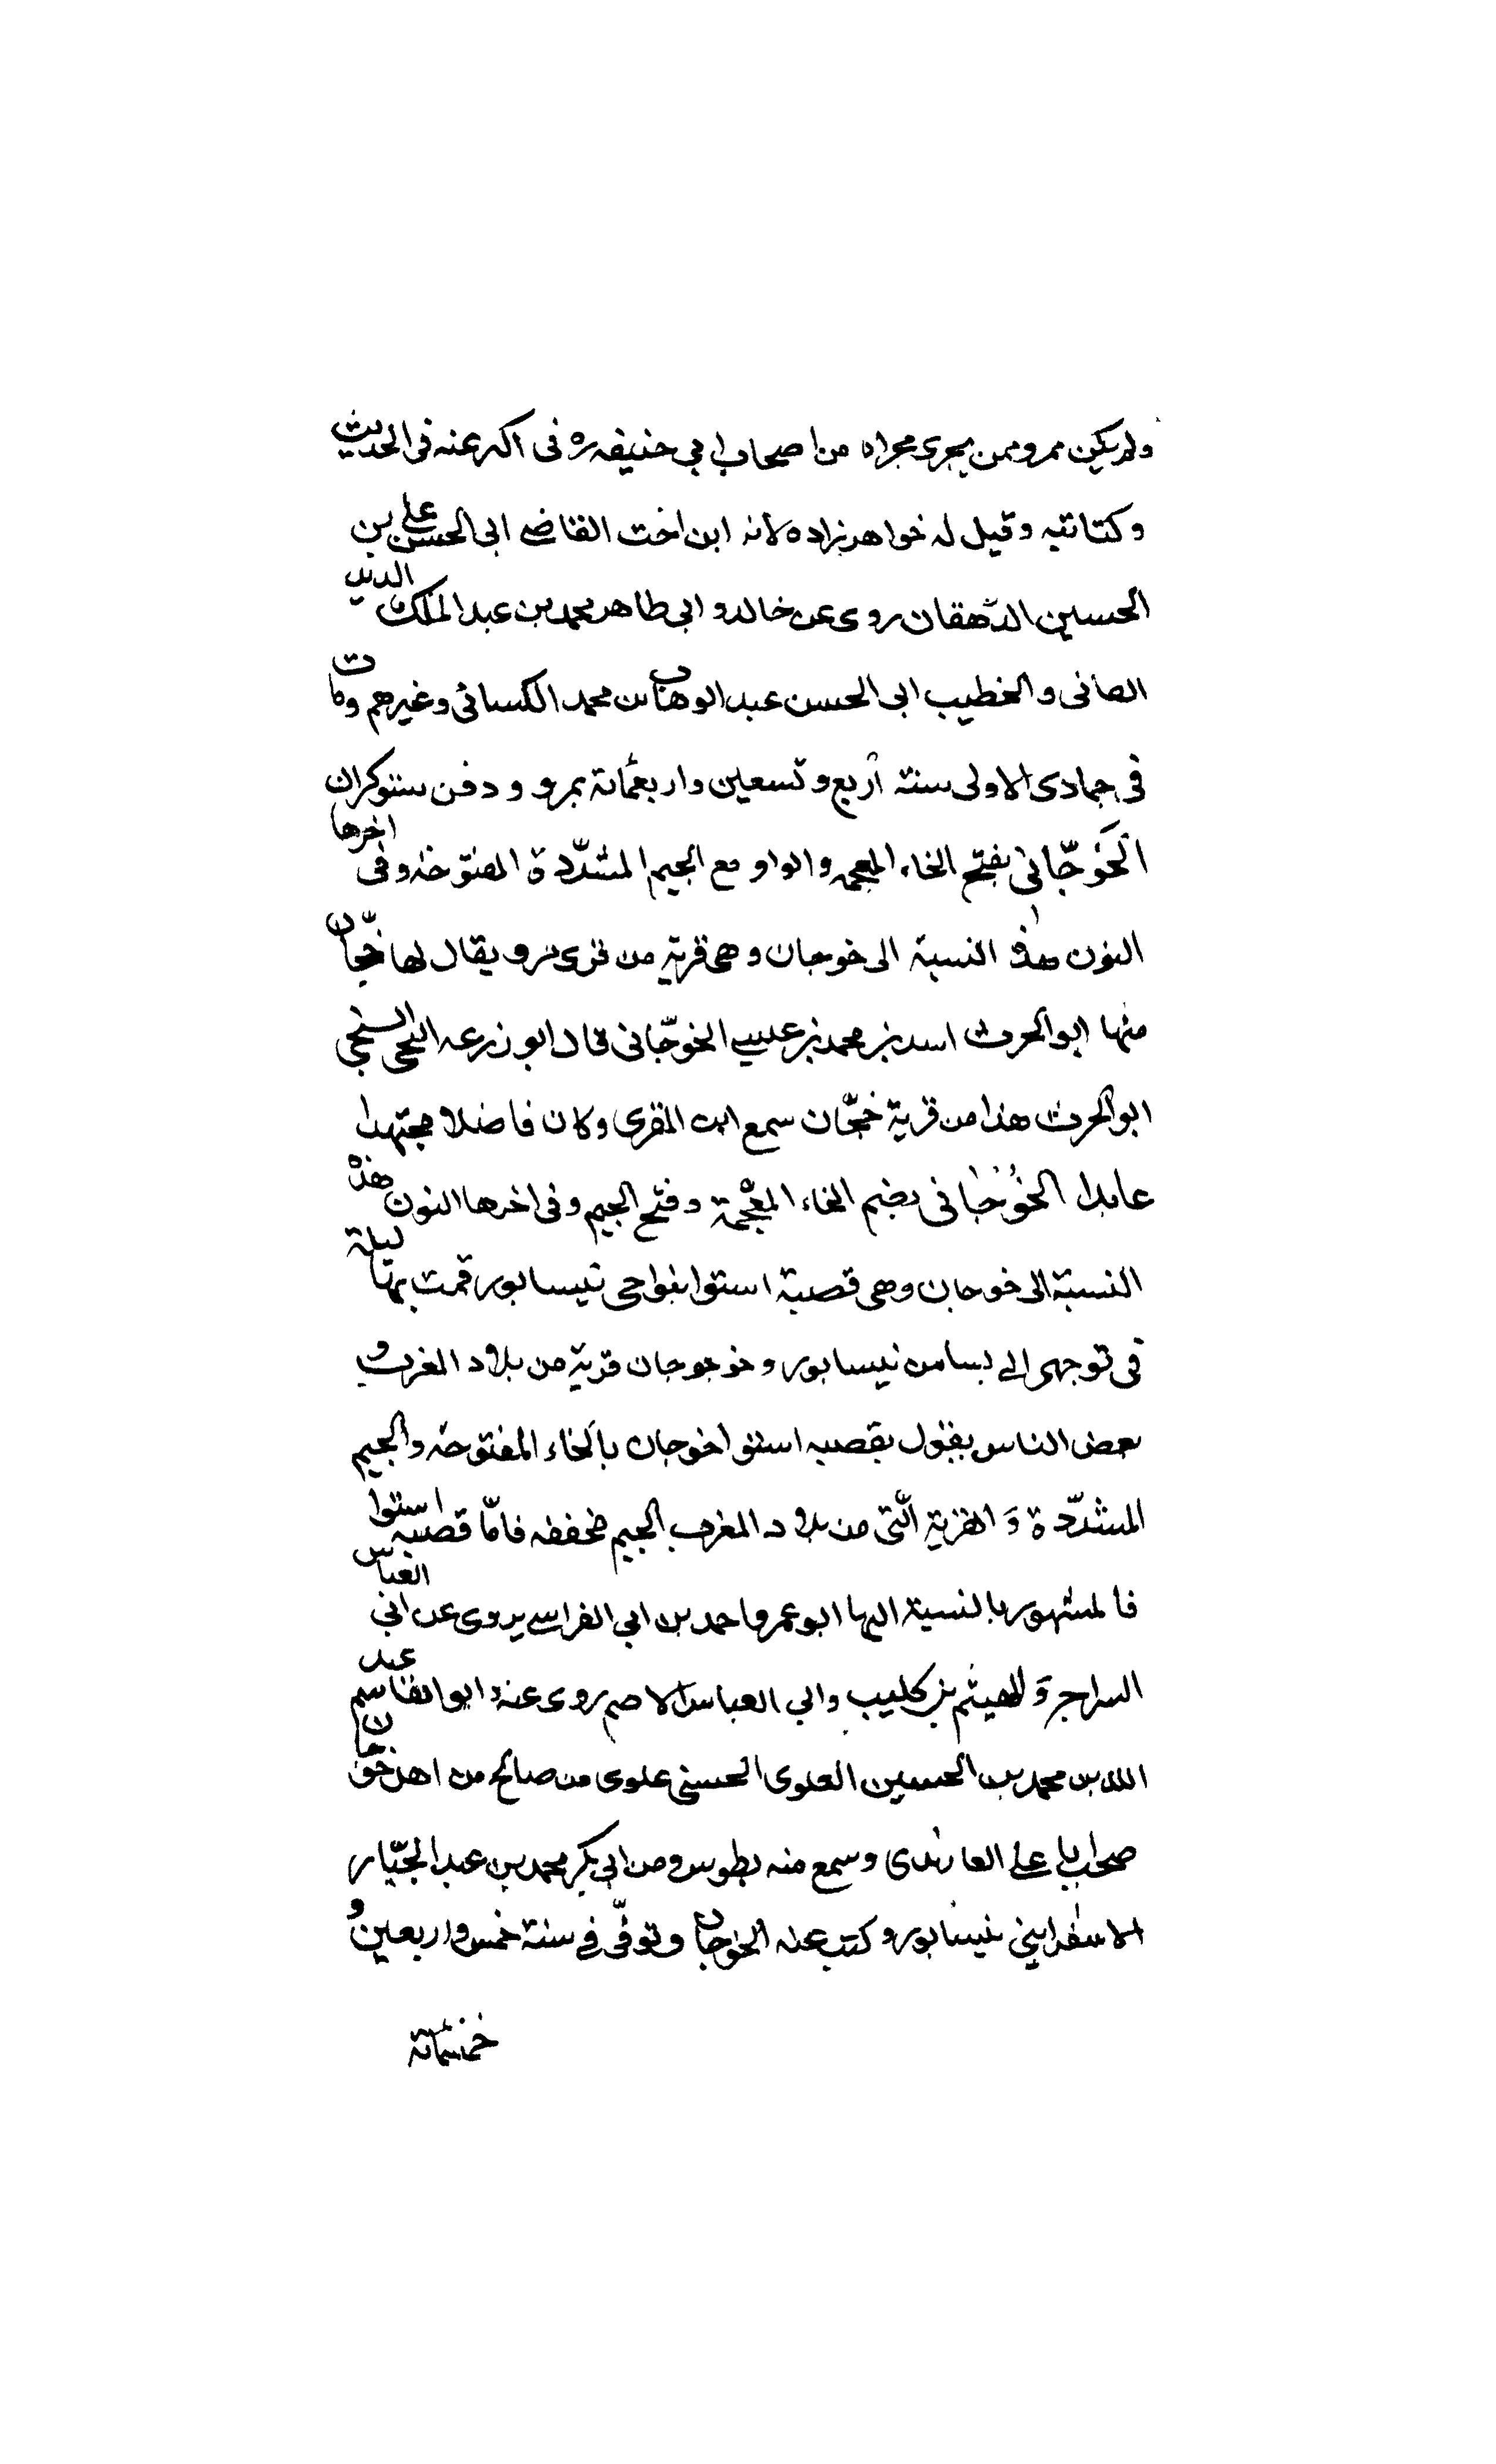 ولم يكن بمرو ممن يجرى مجراه من اصحاب ابي حنيفه ره فى اكثر عنه فى الحديث
وكتابته وقيل له خواهرزاده لأنه ابن اخت القاضي ابى الحسن علي بن
الحسين الدهقان روى عن خاله و ابى طاهر محمد بن عبد الملك
و الخطيب ابى الحسن عبد الوهاب بن محمد الكسائى وغيرهم ومات
فى جمادى الاولى سنة أربع و تسعين واربعمائة بمرو و دفن
الخَوجّانى بفتح الخاء المعجمه والواو مع الجيم المشدّدة المفتوحة وفى اخرها
النون هذه النسبة الى خوجان وهى قرية من قرى مرو ويقال لها خجّان
منها ابو الحرث اسد بن محمد بن عيسى الخوجّانى قال ابو زرعه السنجى
ابو الحرث هذا من قرية خجّان سمع ابن المقرى وكان فاضلا مجتهدا
عابدا الخُوجانى بضم الخاء المعجمة وفتح الجيم وفى اخرها النون هذه
النسبة الى خوجان وهى قصبة استوا بنواحى نيسابور قمت بها ليلة
فى توجهى الى نسا من نيسابور و خوجان قرية من بلاد المغرب و
بعض الناس يقول بقصبه استوا خوجان بالخاء المفتوحة والجيم
المشدّدة وَ القرية الّتى من بلاد المغرب الجيم مخففه فامّا قصبه استوا
فالمشهور بالنسبة اليها ابو عمرو احمد بن ابي الفراتى يروى عن ابى العباس
السراج وَ الهيثم بن كليب وابي العباس الاصم روى عنه ابو القاسم عبد
الله بن محمد بن الحسين العلوى الحسنى علوى من صالح من اهل خوجان
صحب ابا على الفارندى وسمع منه بطوس ومن ابى بكر محمد بن عبد الجبّار
الاسفراينى بنيسابور وكتب عنه الخوجان وتوفّى فى سنة خمس واربعين و
خمسمائة